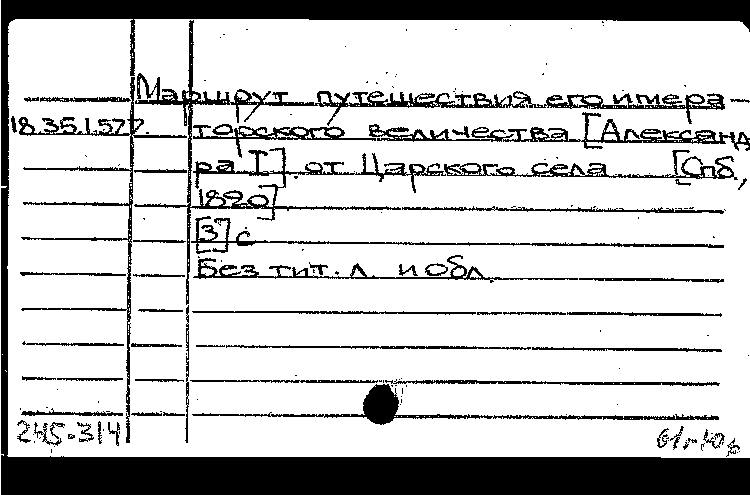 Маршрут путешествия его импера-
18.35.1.577. торского величества [Александ
ра I] от Царского села [Спб,
1820]
[3] с
Без тит. л. и обл.
245-314